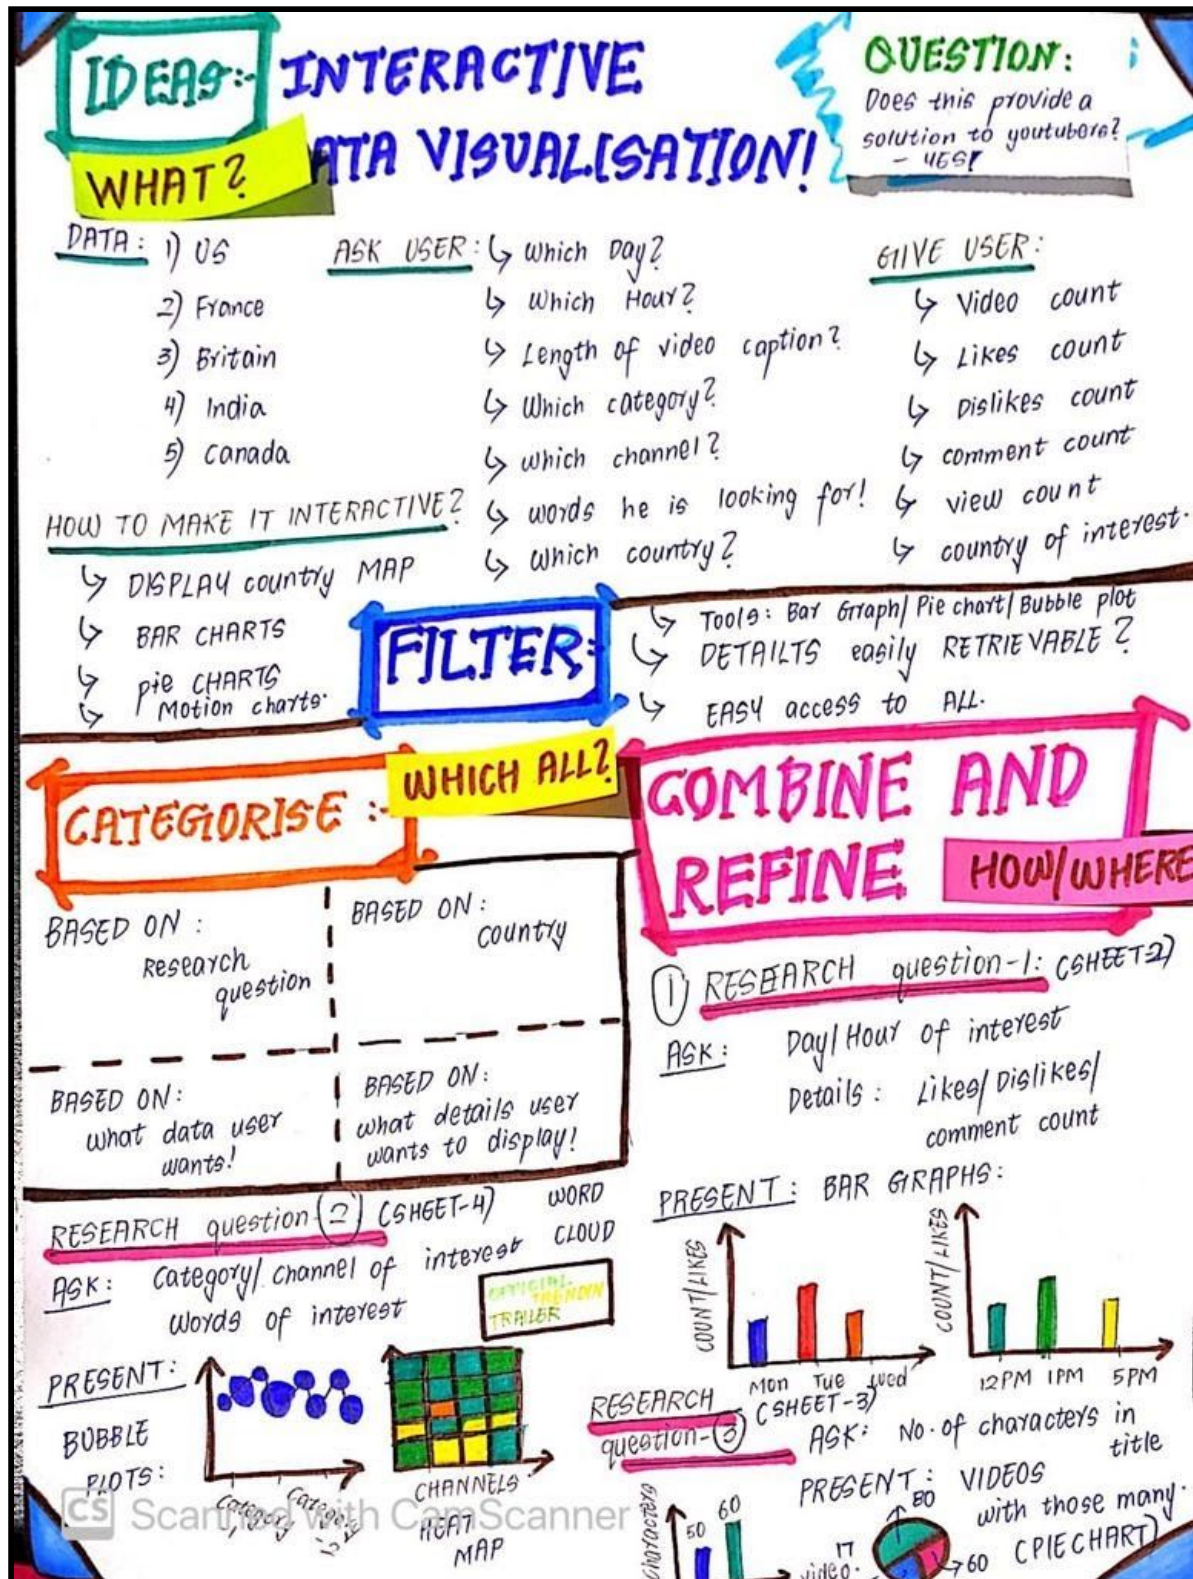 IDEAS:-
INTERACTIVE
ATA VISUALISATION!
WHAT?
QUESTION:
Does this provide a
solution to youtubers?
- YES!
DATA:
1) US
2) France
3) Britain
4) India
5) Canada
ASK USER:
↳ Which Day?
↳ Which Hour?
↳ Length of video caption?
↳ Which category?
↳ which channel?
↳ words he is looking for!
↳ Which country?
GIVE USER:
↳ Video count
↳ Likes count
↳ Dislikes count
↳ comment count
↳ view count
↳ country of interest.
HOW TO MAKE IT INTERACTIVE?
↳ DISPLAY country MAP
↳ BAR CHARTS
↳ pie CHARTS
↳ Motion charts.
FILTER:
↳ Tools: Bar Graph/ Pie chart/ Bubble plot
↳ DETAILTS easily RETRIEVABLE?
↳ EASY access to ALL.
CATEGORISE :-
WHICH ALL?
BASED ON:
Research
question
BASED ON:
Country
BASED ON:
what data user
wants!
BASED ON:
what details user
wants to display!
COMBINE AND
REFINE
HOW/WHERE
1 RESEARCH question-1: (SHEET-2)
ASK: Day/ Hour of interest
Details: Likes/ Dislikes/
comment count
PRESENT: BAR GRAPHS:
COUNT/LIKES
Mon Tue Wed
COUNT/LIKES
12PM 1PM 5PM
RESEARCH question-2 (SHEET-4)
WORD
CLOUD
ASK: Category/ channel of interest
Words of interest
OFFICIAL
TRENDIN
TRAILER
PRESENT:
BUBBLE
PLOTS:
Category
CHANNELS
HEAT
MAP
RESEARCH (SHEET-3)
question-3
ASK: No. of characters in
title
PRESENT: VIDEOS
with those many.
(PIECHART)
characters
50
60
80
17
video.
60
CS Scanned with CamScanner